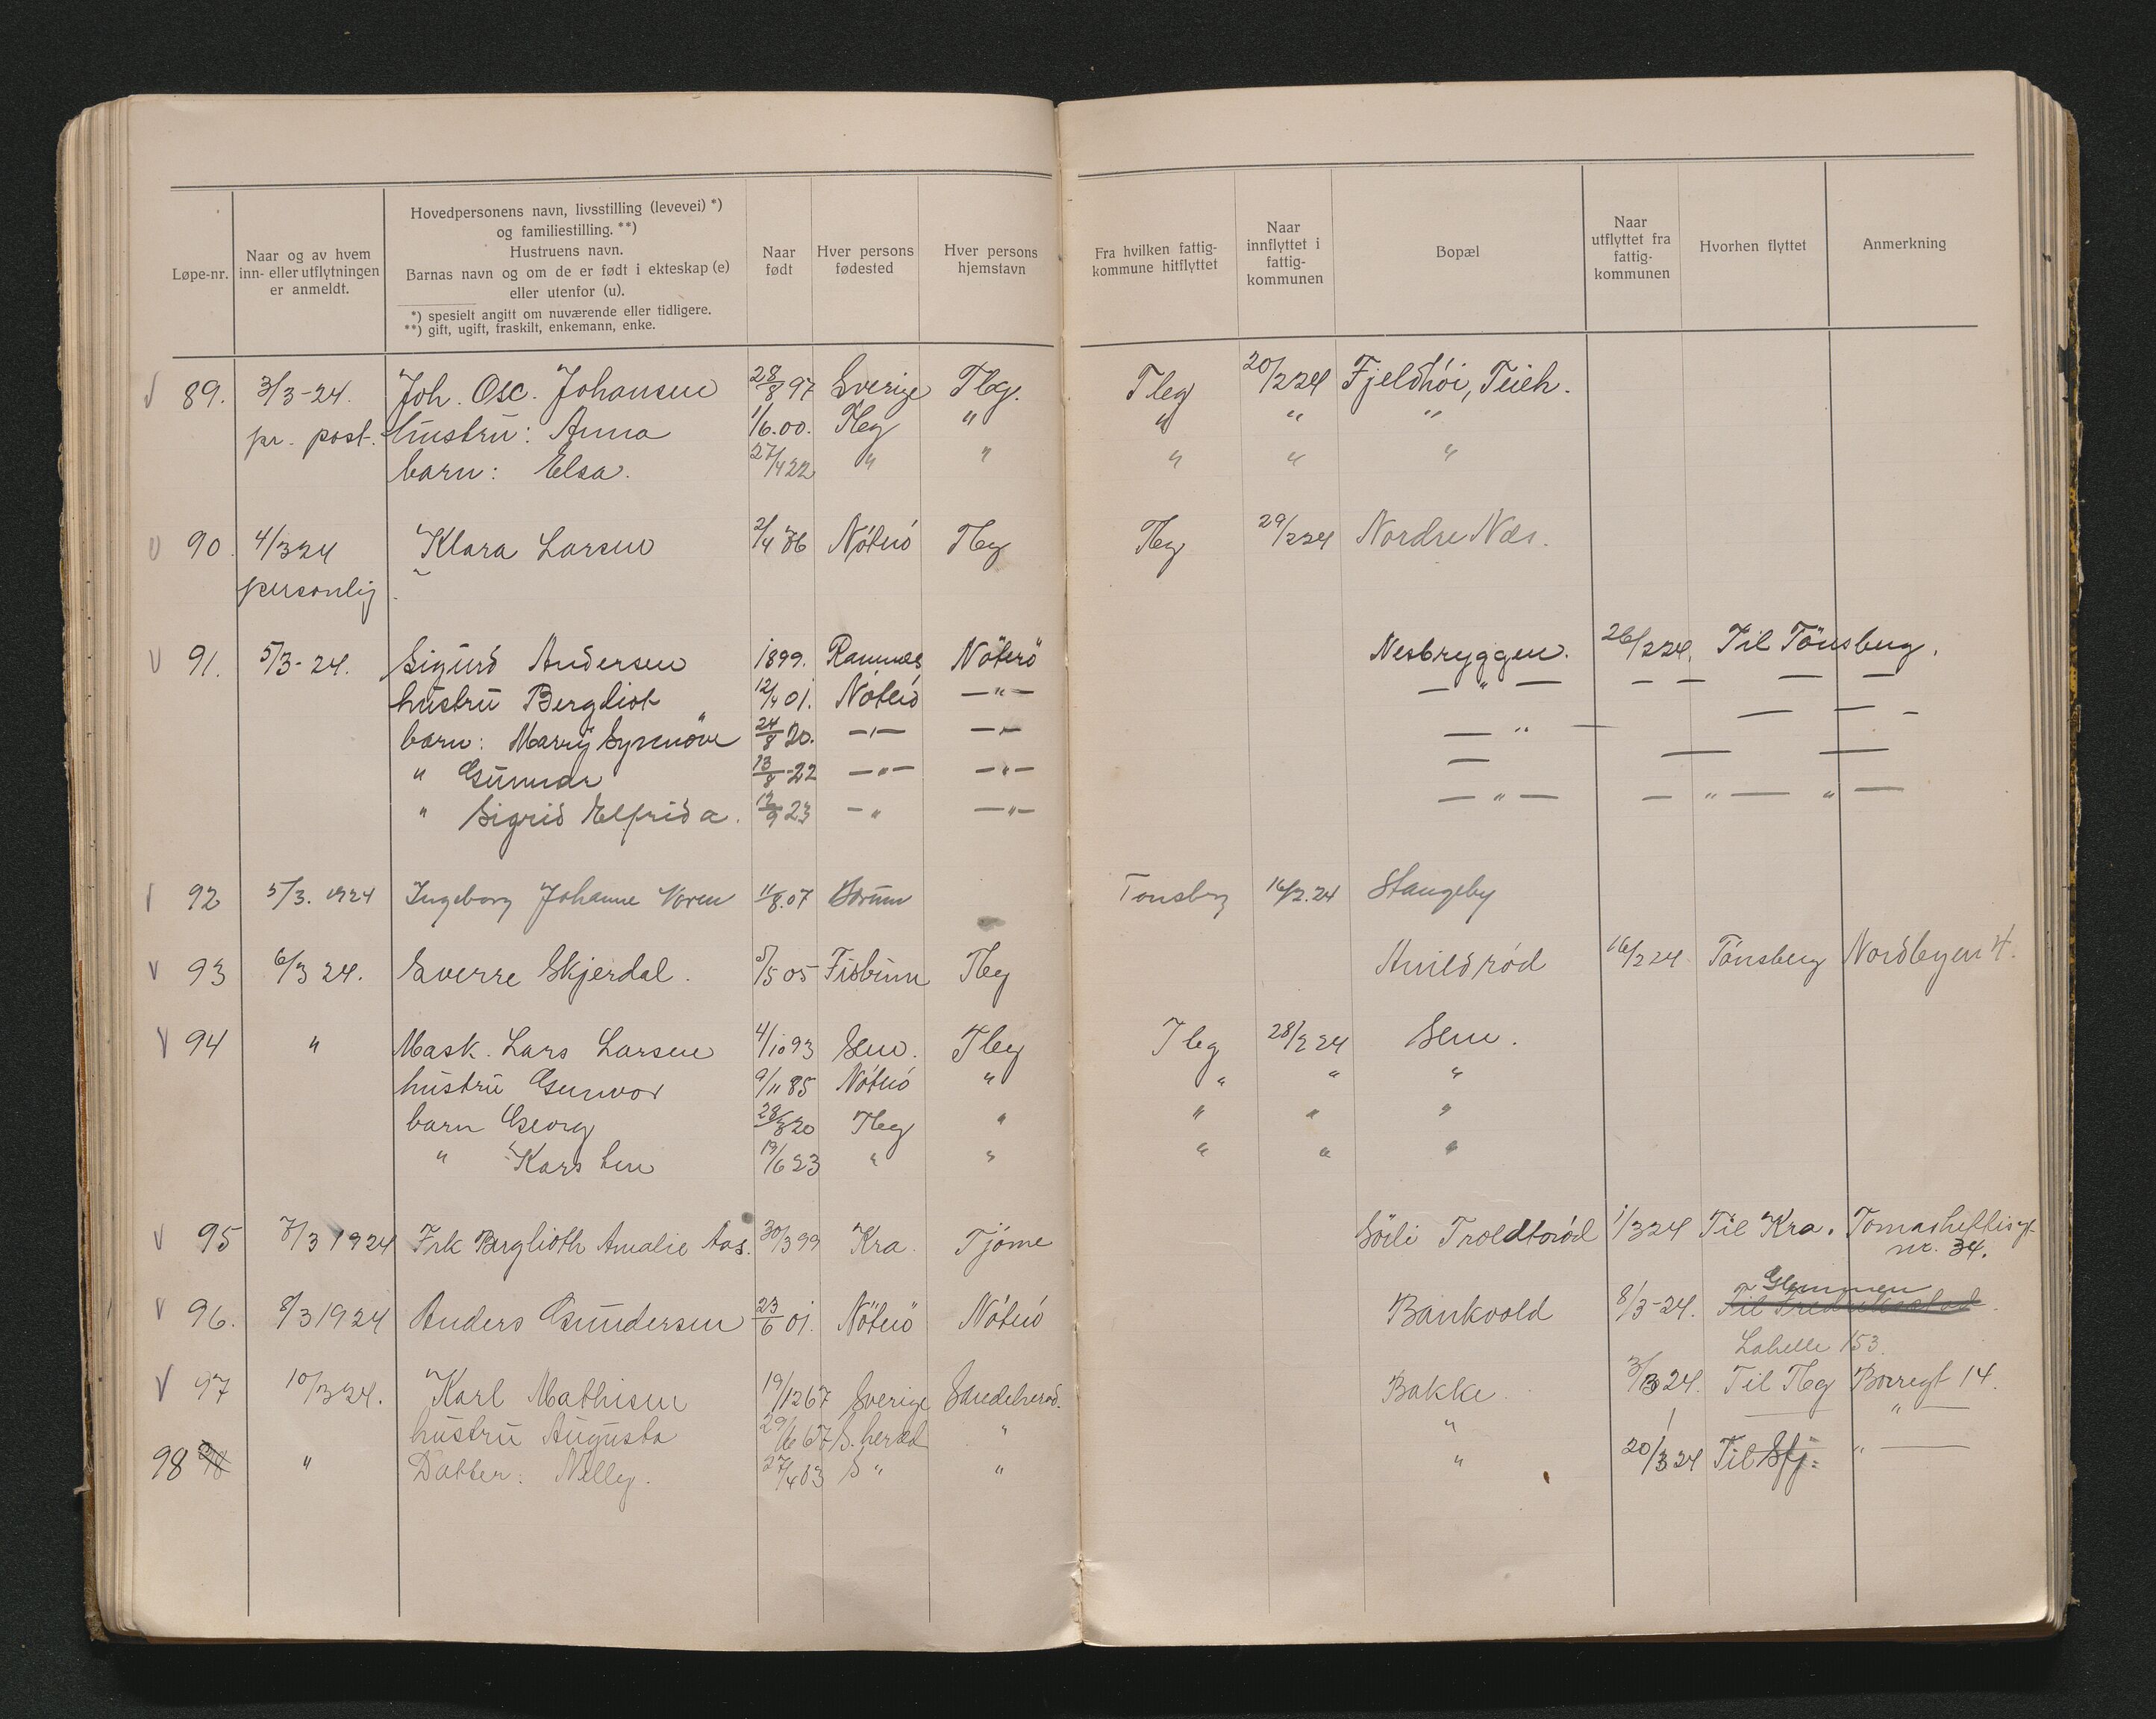 Løpe-nr.
Naar og av hvem
inn- eller utflytningen
er anmeldt.
Hovedpersonens navn, livsstilling (levevei) *)
og familiestilling. **)
Hustruens navn.
Barnas navn og om de er født i ekteskap (e)
eller utenfor (u).
*) spesielt angitt om nuværende eller tidligere.
**) gift, ugift, fraskilt, enkemann, enke.
Naar
født
Hver persons
fødested
Hver persons
hjemstavn
Fra hvilken fattig-
kommune hitflyttet
Naar
innflyttet i
fattig-
kommunen
Bopæl
Naar
utflyttet fra
fattig-
kommunen
Hvorhen flyttet
Anmerkning
89. 3/3-24. Joh. Osc. Johansen 28/8 97 Sverige Tbg. Tbg 20/2 24 Fjeldhöi, Teieh.
pr. post. hustru: Anna 1/6.00. Tbg " " " "
barn: Elsa. 27/4 22 " " " " "
90. 4/3 24 Klara Larsen 2/4 86 Nöterö Tbg Tbg 29/2 24 Nordre Næs.
personlig.
91. 5/3-24. Sigurd Andersen 1899. Ramnes Nöterö Nesbryggen. 26/2 24. Til Tönsberg.
hustru Bergliot 12/4 01. Nöterö — " — — " — — — — —
barn: Marry Synnöve 24/8 20. — " — — " — — " — — —
" Gunnar 13/8-22 — " — — " — — — —
" Sigrid Elfrida. 12/9 23 — " — " — — " — — " — " —
92 5/3. 1924 Ingeborg Johanne Voren 11/8.07 Tonsberg 16/2.24 Stangeby
93 6/3 24. Sverre Skjerdal. 5/5 05 Tbg 16/2 24 Tönsberg Nordbyen 4.
94 " Mask. Lars Larsen 4/10 93 Sem. Tbg Tbg 28/2 24 Sem.
hustru Gunvor 9/11 85 Nöterö " " " "
barn Georg 28/8 20 Tbg " " " "
" Karsten 13/6 23 " " " " "
95 7/3 1924 Frk Berglioth Amalie Aas. 30/3 99 Kra. Tjöme Söili Troldtoröd 1/3 24 Til Kra. Tomasheftisgt
nr. 34.
Glemmen
96. 8/3 1924 Anders Gundersen 23/6 01. Nöterö Nöterö Bankvold 8/3-24. Til Fredrikstad.
Labelle 153.
97 10/3 24. Karl Mathisen 19/12 67 Sverige Sandeherod. Bakke. 3/3 24. Til Tbg Borregt 14.
hustru Augusta 29/6 67 S. herad " " — " —
98 " Datter: Nelly. 27/4 03 S " " " 20/3 24 Til Sfj: " —